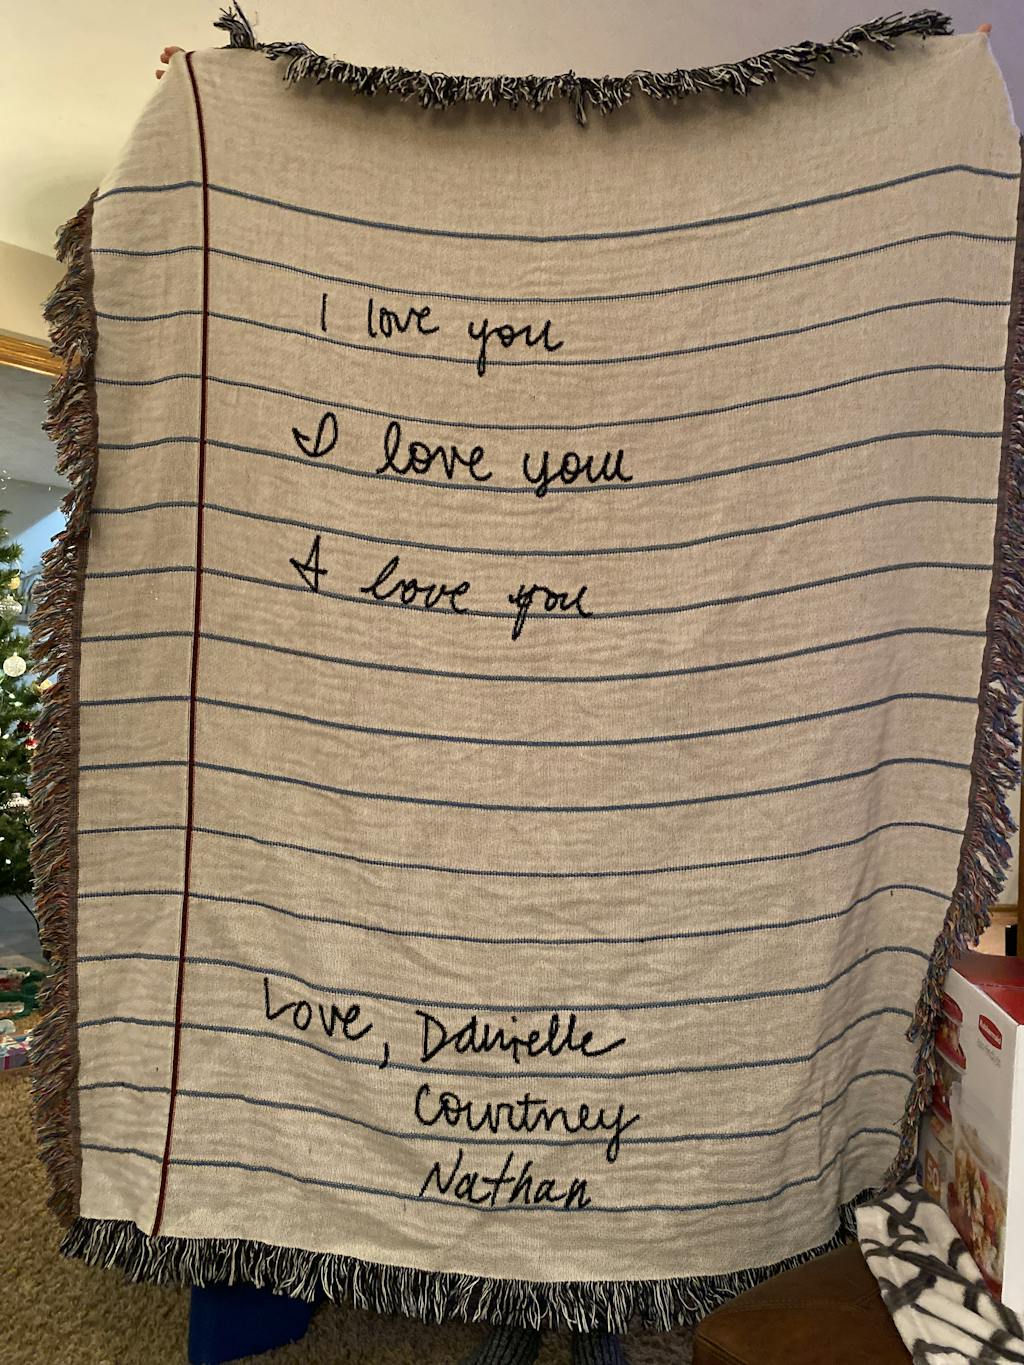 I love you
I love you
I love you
Love, Danielle
Courtney
Nathan